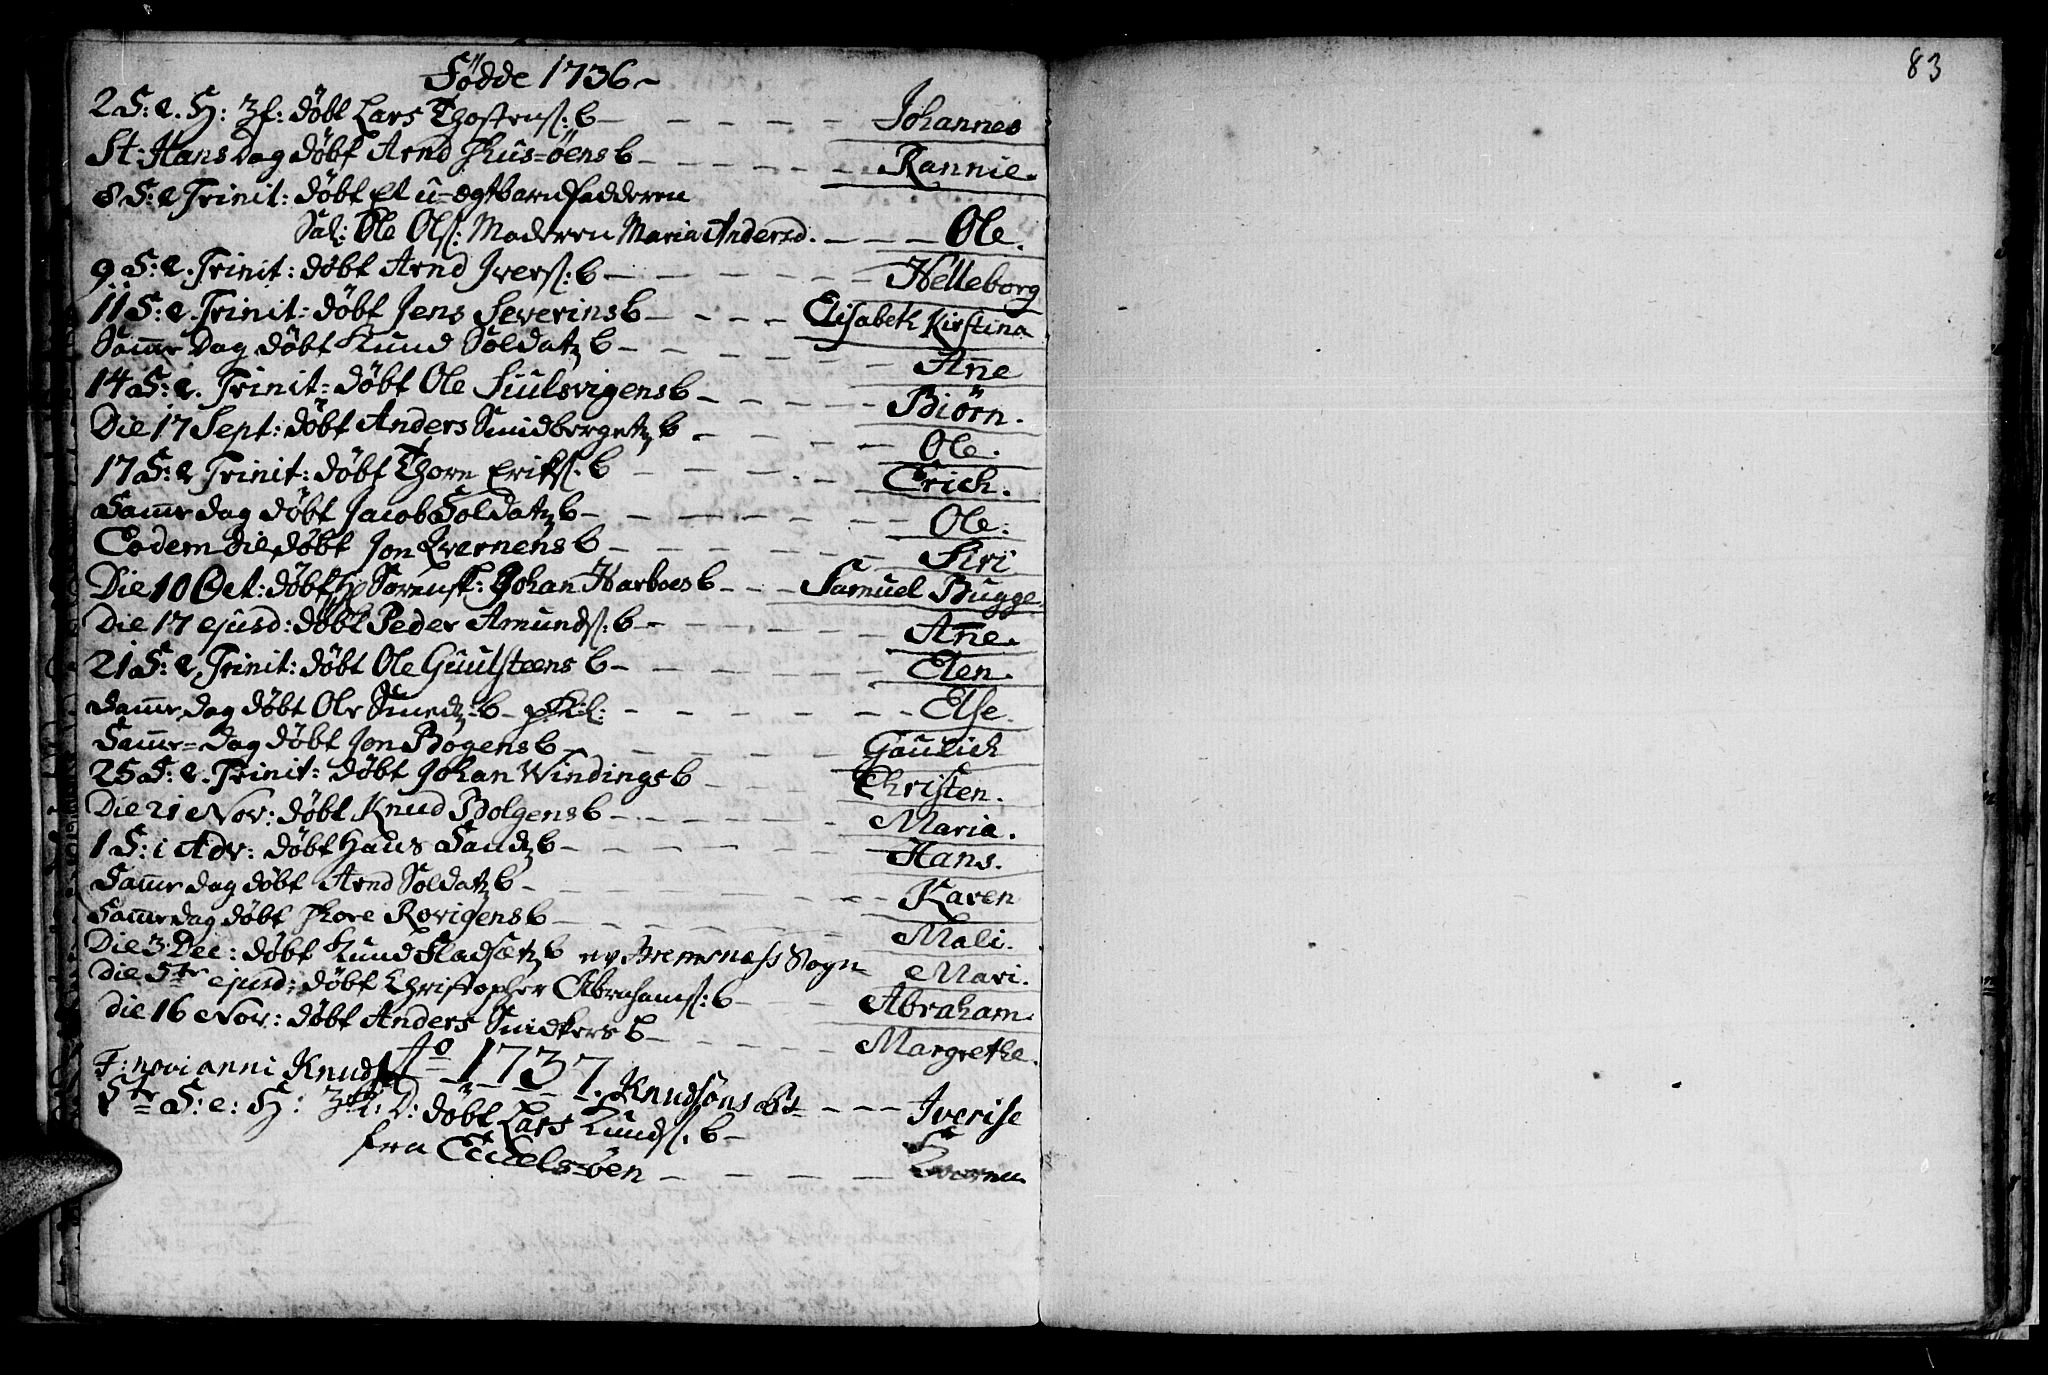 83
Födde 1736
2 S: e. H: 3f: döbt Lars Thostens: b Johannes
St: Hans Dag döbt Arnd Huus=öens b Rannie.
8 S: e Trinit: döbt et u=ægt barn Fadderen
Sal: Ole Ols: Moderen Maria Andersd. Ole.
9 S: e. Trinit: döbt Arnd Ivers: b Helleborg
11 S: e. Trinit: döbt Jens Severins b Elisabeth Kirstina
Samme Dag döbt Knud Soldatz b Ane
14 S: e. Trinit: döbt Ole Juulsvigens b Biörn.
Die 17 Sept: döbt Anders Smidbergetz b Ole.
17 S: e Trinit: döbt Thore Eriks: b Erich.
Samme dag döbt Jacob Soldatz b Ole:
Eodem die döbt Jon Qvernens b Siri
Die 10 Oct: döbt Hr Sorensk: Johan Harboes b Samuel Bugge.
Die 17 ejusd: döbt Peder Amunds: b Ane.
21 S: e. Trinit: döbt Ole Guulsteens b Elen.
Samme dag döbt Ole Smedz: b Else.
Samme=dag döbt Jon Bogens b Gaulich
25 S: e. Trinit: döbt Johan Windings b Christen.
Die 21 Nov: döbt Knud Bolgens b Maria.
1 S: i Adv: döbt Hans Sandz b Hans.
Samme dag döbt Arnd Soldatz b Karen
Samme dag döbt Thore Rovigens b Mali.
Die 3 Dec: döbt Knud Fladsætz b ex Bremsness Sogn Mari.
Die 5te ejusd: döbt Christopher Abrahams: b Abraham.
Die 16 Nov: döbt Anders Smidkers b Margrethe.
Ao 1737
F: novi anni Knuds Knudsöns b Iverise
S: e: H: 3 K: D: döbt Lars Knuds: b
fra Eckelsöen